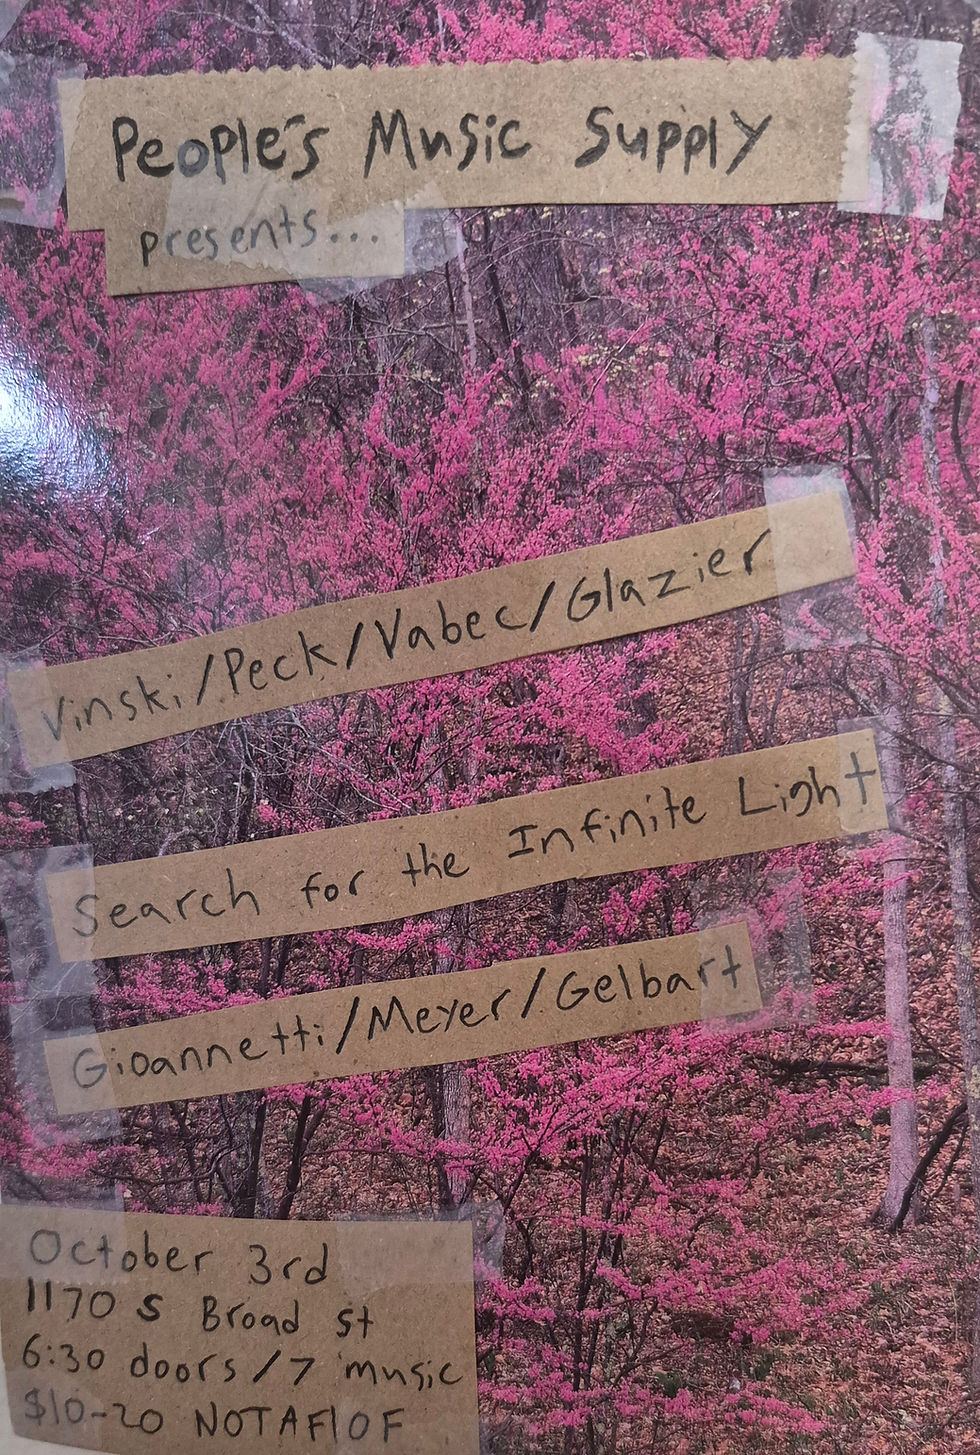 People's Music Supply
presents...
Vinski/Peck/Vabec/Glazier
Search for the Infinite Light
Gioannetti/Meyer/Gelbart
October 3rd
1170 S Broad St
6:30 doors/7 music
$10-20 NOTAFLOF